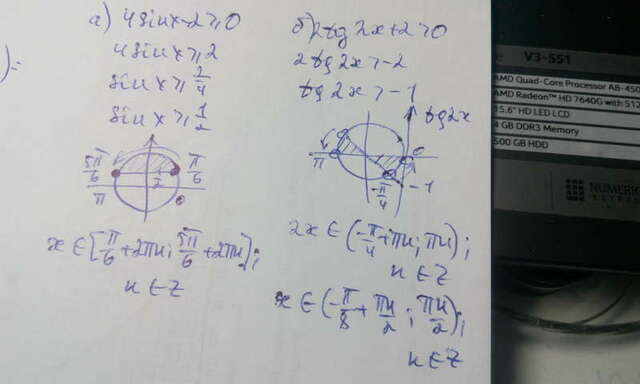 а) 4sinx-2⩾0
4sinx⩾2
sinx⩾2/4
sinx⩾1/2
5π/6 π/6
1/2
π 0
x∈[π/6+2πn; 5π/6+2πn];
n∈Z
б) 2tg2x+2>0
2tg2x>-2
tg2x>-1
tg2x
π 0
-π/4 -1
2x∈(-π/4+πn; πn);
n∈Z
x∈(-π/8+πn/2; πn/2);
n∈Z
V3-551
AMD Quad-Core Processor A8-450
AMD Radeon™ HD 7640G with 512
15.6" HD LED LCD
4 GB DDR3 Memory
500 GB HDD